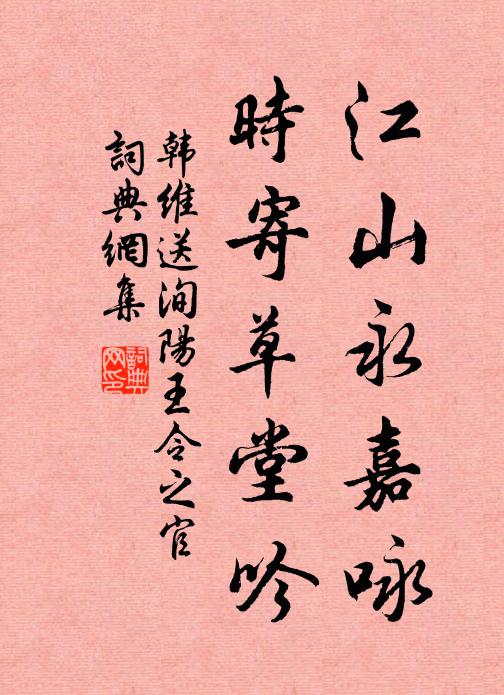 江山永嘉咏
時寄草堂吟
韩維送洵陽王令之官
詞典網集
詞典網印